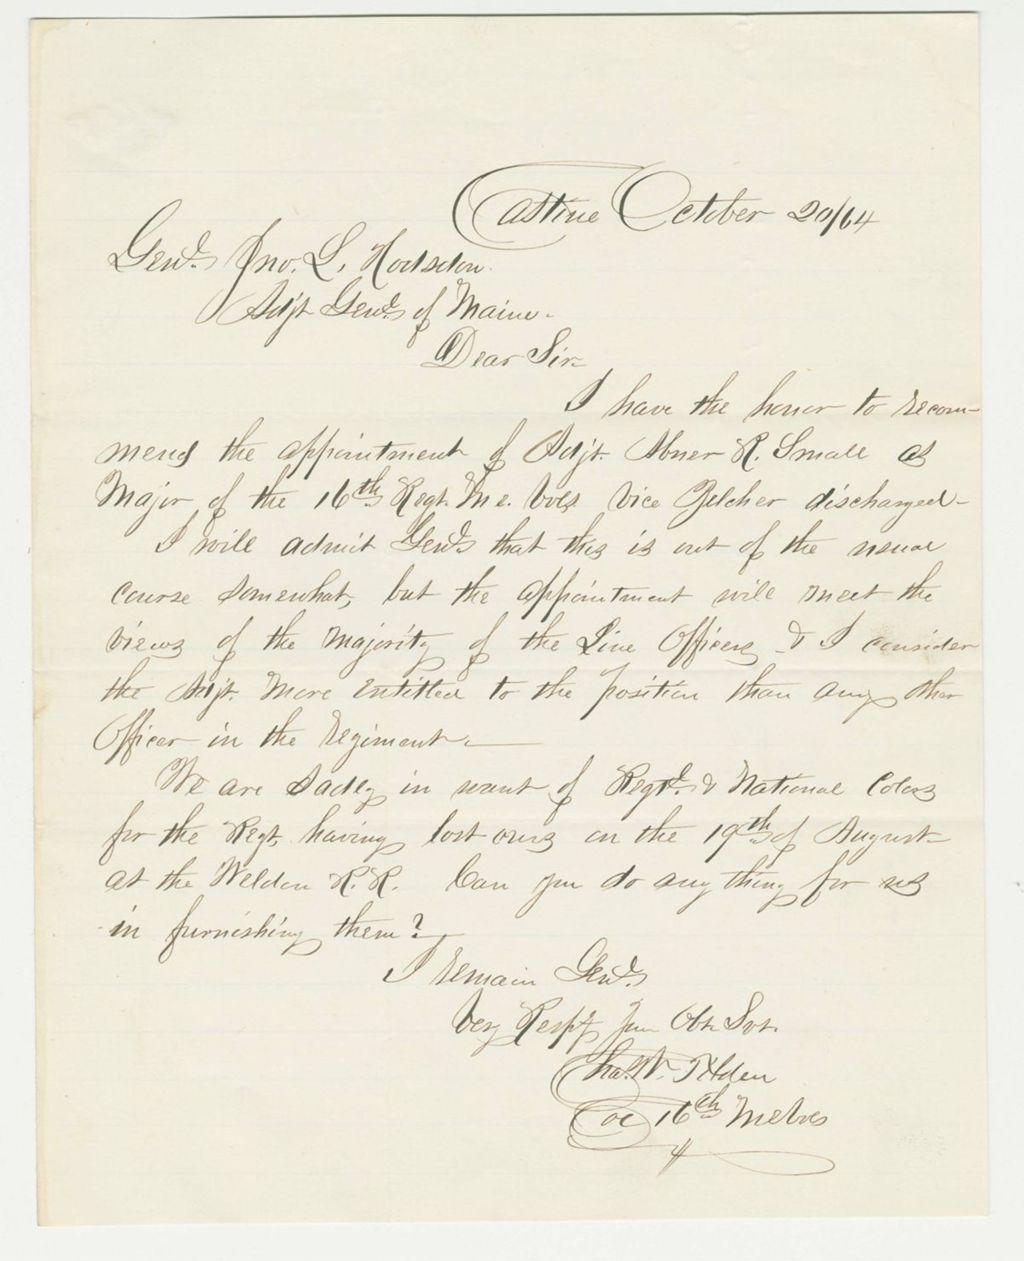 Castine October 20/64
Genl. Jno. L. Hodsdon.
Adjt Genl. of Maine.
Dear Sir
I have the honor to recom-
mend the appointment of Adjt. Abner R. Small as
Major of the 16th Regt. Me. Vols vice Belcher discharged-
I will admit Genl. that this is out of the usual
course somewhat, but the appointment will meet the
views of the majority of the Line Officers & I consider
the Adjt. more entitled to the position than any other
Officer in the regiment.
We are sadly in want of Regtl. & National Colors
for the Regt. having lost ours on the 19th of August
at the Weldon R.R. Can you do any thing for us
in furnishing them?
I remain Genl.
Very Respy your Obt. Svt.
Chas. W. Tilden
Col 16th Me Vols